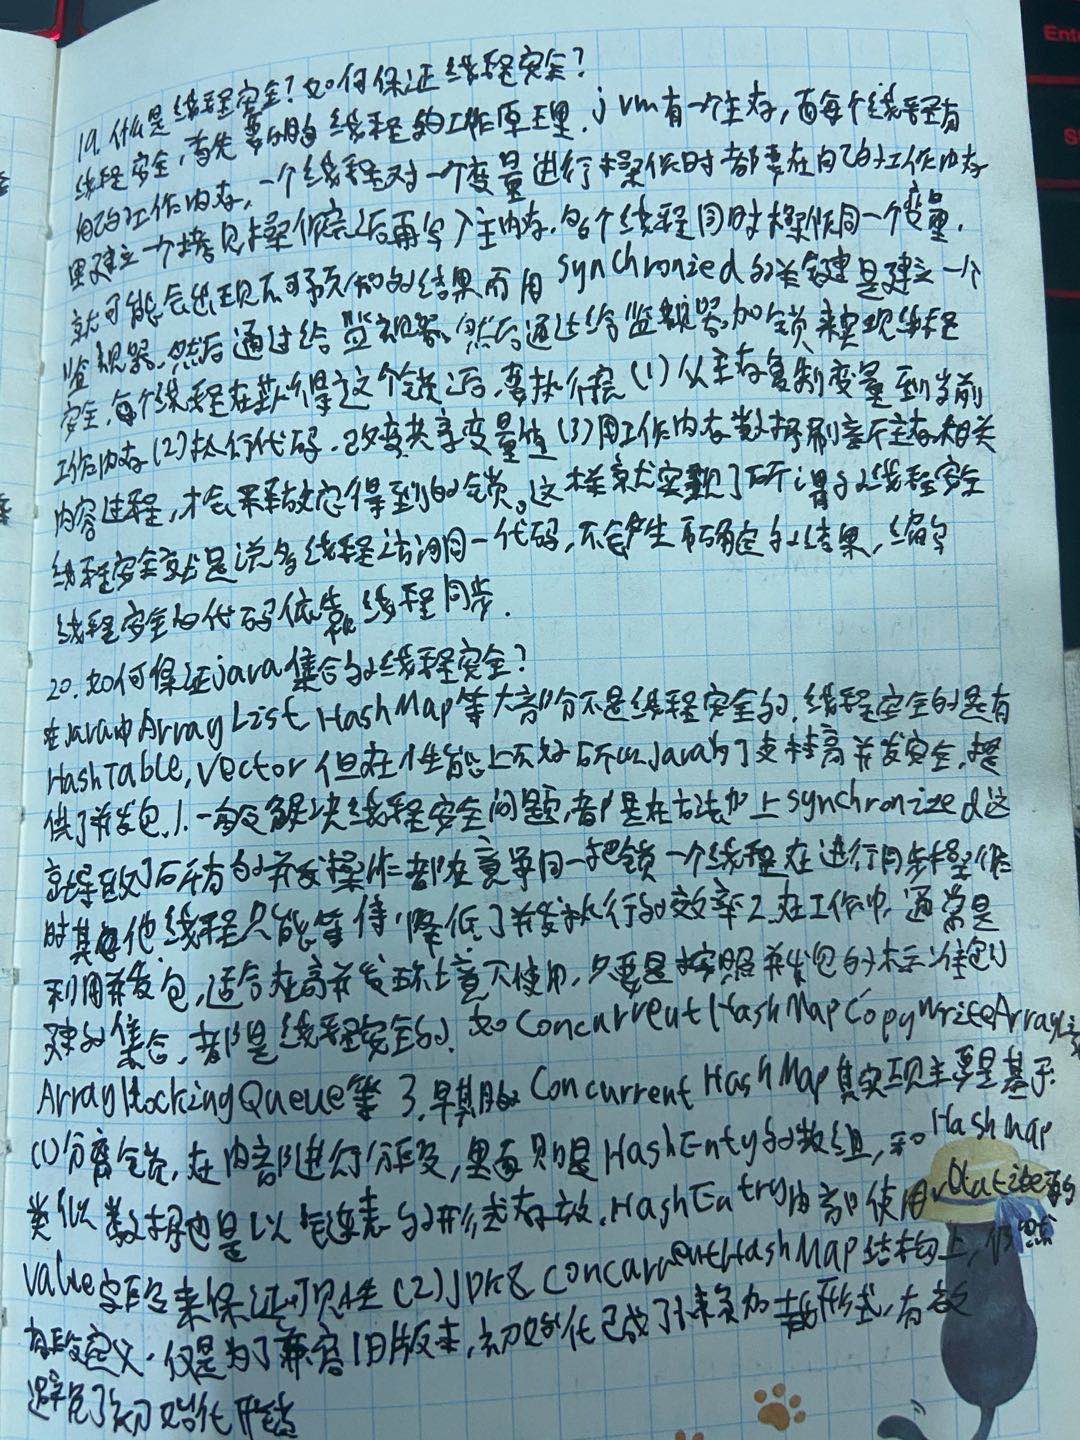 19. 什么是线程安全?如何保证线程安全?
线程安全,首先要明白线程的工作原理,jvm有一个主存,而每个线程有
自己的工作内存,一个线程对一个变量进行操作时都要在自己的工作内存
里建立一个拷贝操作完之后再写入主内存.多个线程同时操作同一个变量,
就可能会出现不可预知的结果而用synchronized的关键是建立一个
监视器,然后通过给监视器,然后通过给监视器加锁来实现线程
安全,每个线程在获得这个锁之后,要执行完(1)从主存复制变量到当前
工作内存(2)执行代码.改变共享变量值(3)用工作内存数据刷新主存相关
内容过程,才会释放它得到的锁。这样就实现了所谓的线程安全
线程安全就是说多线程访问同一代码,不会产生不确定的结果,编写
线程安全的代码依靠线程同步.
20. 如何保证java集合的线程安全?
在Java中ArrayList HashMap等大部分不是线程安全的,线程安全的是有
HashTable, Vector 但在性能上不好所以Java为了支持高并发安全,提
供了并发包,1.一般解决线程安全问题,都是在方法加上synchronized这
就导致了所有的并发操作都在竞争同一把锁一个线程在进行同步操作
时其他线程只能等待,降低了并发执行的效率2.在工作中,通常是
利用并发包,适合在高并发环境下使用,只要是按照并发包的标准创
建的集合,都是线程安全的.如ConcurrentHashMap CopyWriteArrayList
ArrayBlockingQueue等 3.早期的ConcurrentHashMap其实现主要是基于
(1)分离锁,在内部进行分段,里面则是HashEnty的数组,和HashMap
类似数据也是以链表的形式存放.HashEntry内部使用volatile的
value字段来保证可见性(2)JDK8 ConcurrentHashMap结构上,仍然
有段定义,仅是为了兼容旧版本,初始化已成了懒加载形式,有效
避免了初始化开销